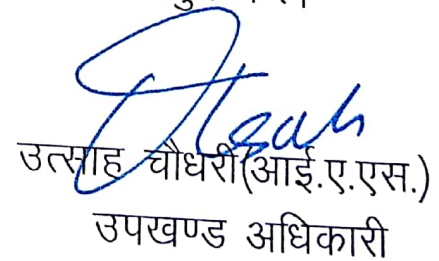 Utsah
उत्साह चौधरी(आई.ए.एस.)
उपखण्ड अधिकारी